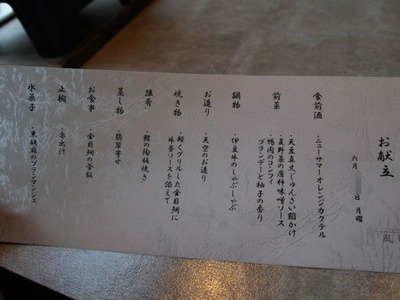 お献立
六月 日 月曜
食前酒
・ニューサマーオレンジカクテル
前菜
・天豆真丈じゅんさい餡かけ
・夏野菜の唐柿味噌ソース
・鴨肉のコンフィ
ブランデーと柚子の香り
鍋物
・伊豆牛のしゃぶしゃぶ
お造り
・天空のお造り
焼き物
・軽くグリルした金目鯛に
味噌ソースを添えて
強肴
・鮑の陶板焼き
蒸し物
・翡翠寄せ
お食事
・金目鯛の釜飯
止椀
・赤出汁
水菓子
・黒胡麻のブランマンジェ